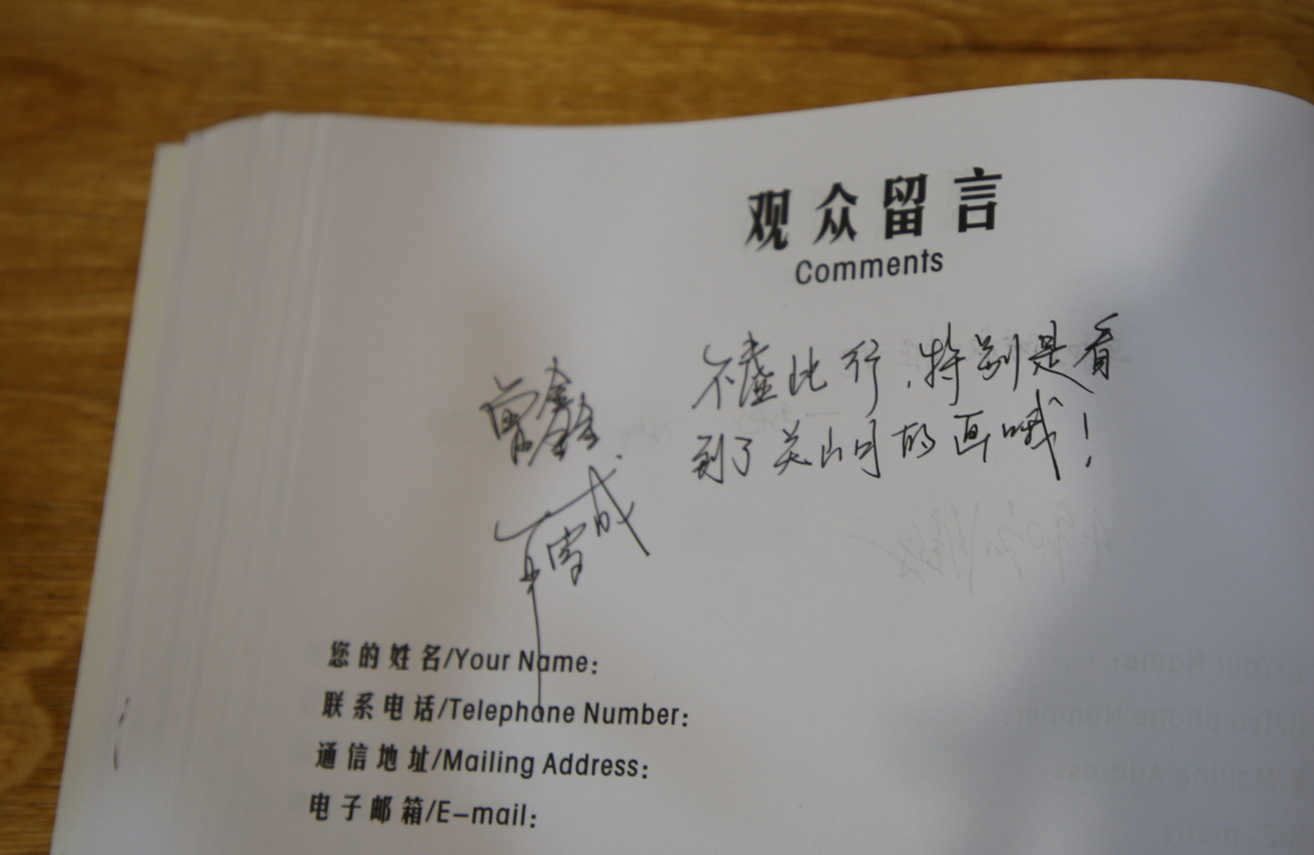 观众留言
Comments
不虚此行，特别是看
到了关山月的画哦！
曾鑫
您的姓名/Your Name:
联系电话/Telephone Number:
通信地址/Mailing Address:
电子邮箱/E-mail: